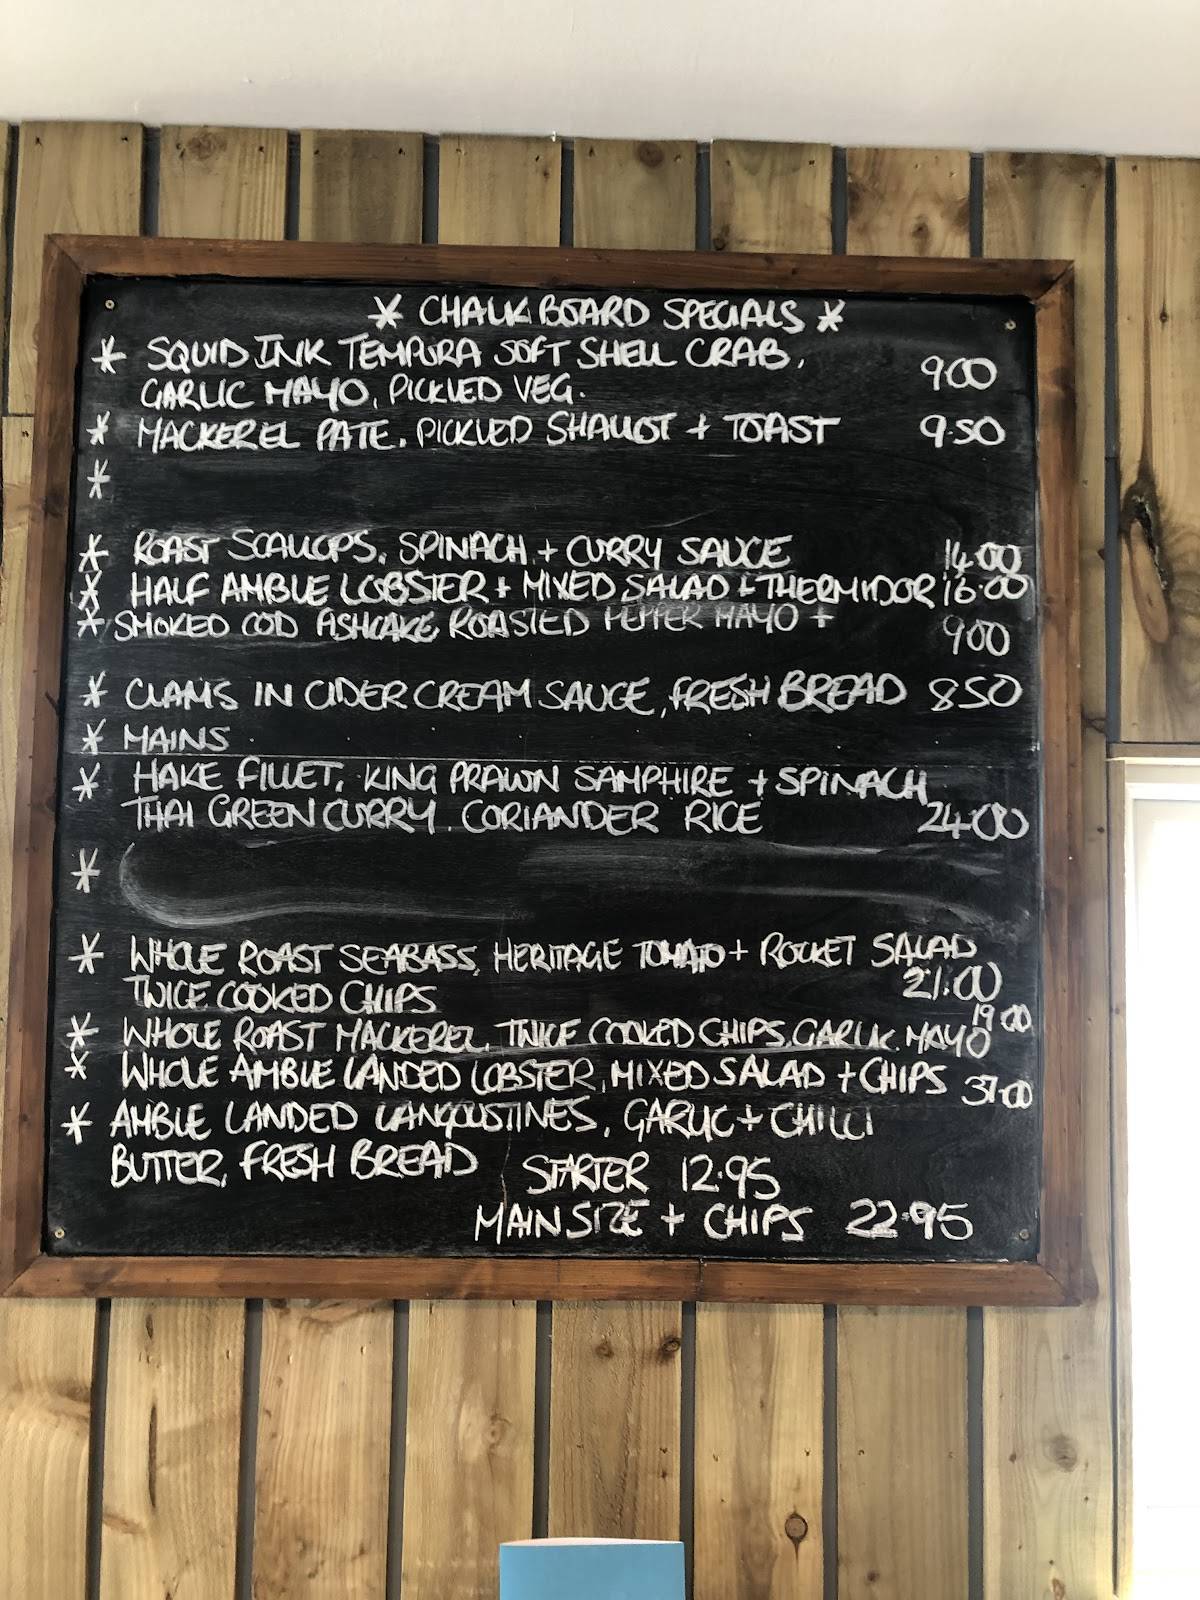 * CHALK BOARD SPECIALS *
* SQUID INK TEMPURA SOFT SHELL CRAB, 9.00
GARLIC MAYO, PICKLED VEG.
* MACKEREL PATE, PICKLED SHALLOT + TOAST 9.50
*
* ROAST SCALLOPS, SPINACH + CURRY SAUCE 14.00
* HALF AMBLE LOBSTER + MIXED SALAD + THERMIDOR 16.00
* SMOKED COD FISHCAKE, ROASTED PEPPER MAYO + 900
* CLAMS IN CIDER CREAM SAUCE, FRESH BREAD 850
* MAINS
* HAKE FILLET, KING PRAWN SAMPHIRE + SPINACH
THAI GREEN CURRY, CORIANDER RICE 24.00
*
* WHOLE ROAST SEABASS, HERITAGE TOMATO + ROCKET SALAD
TWICE COOKED CHIPS 21.00
* WHOLE ROAST MACKEREL, TWICE COOKED CHIPS, GARLIC MAYO 19.00
* WHOLE AMBLE LANDED LOBSTER, MIXED SALAD + CHIPS 37.00
* AMBLE LANDED LANGOUSTINES, GARLIC + CHILLI
BUTTER, FRESH BREAD STARTER 12.95
MAIN SIZE + CHIPS 22.95